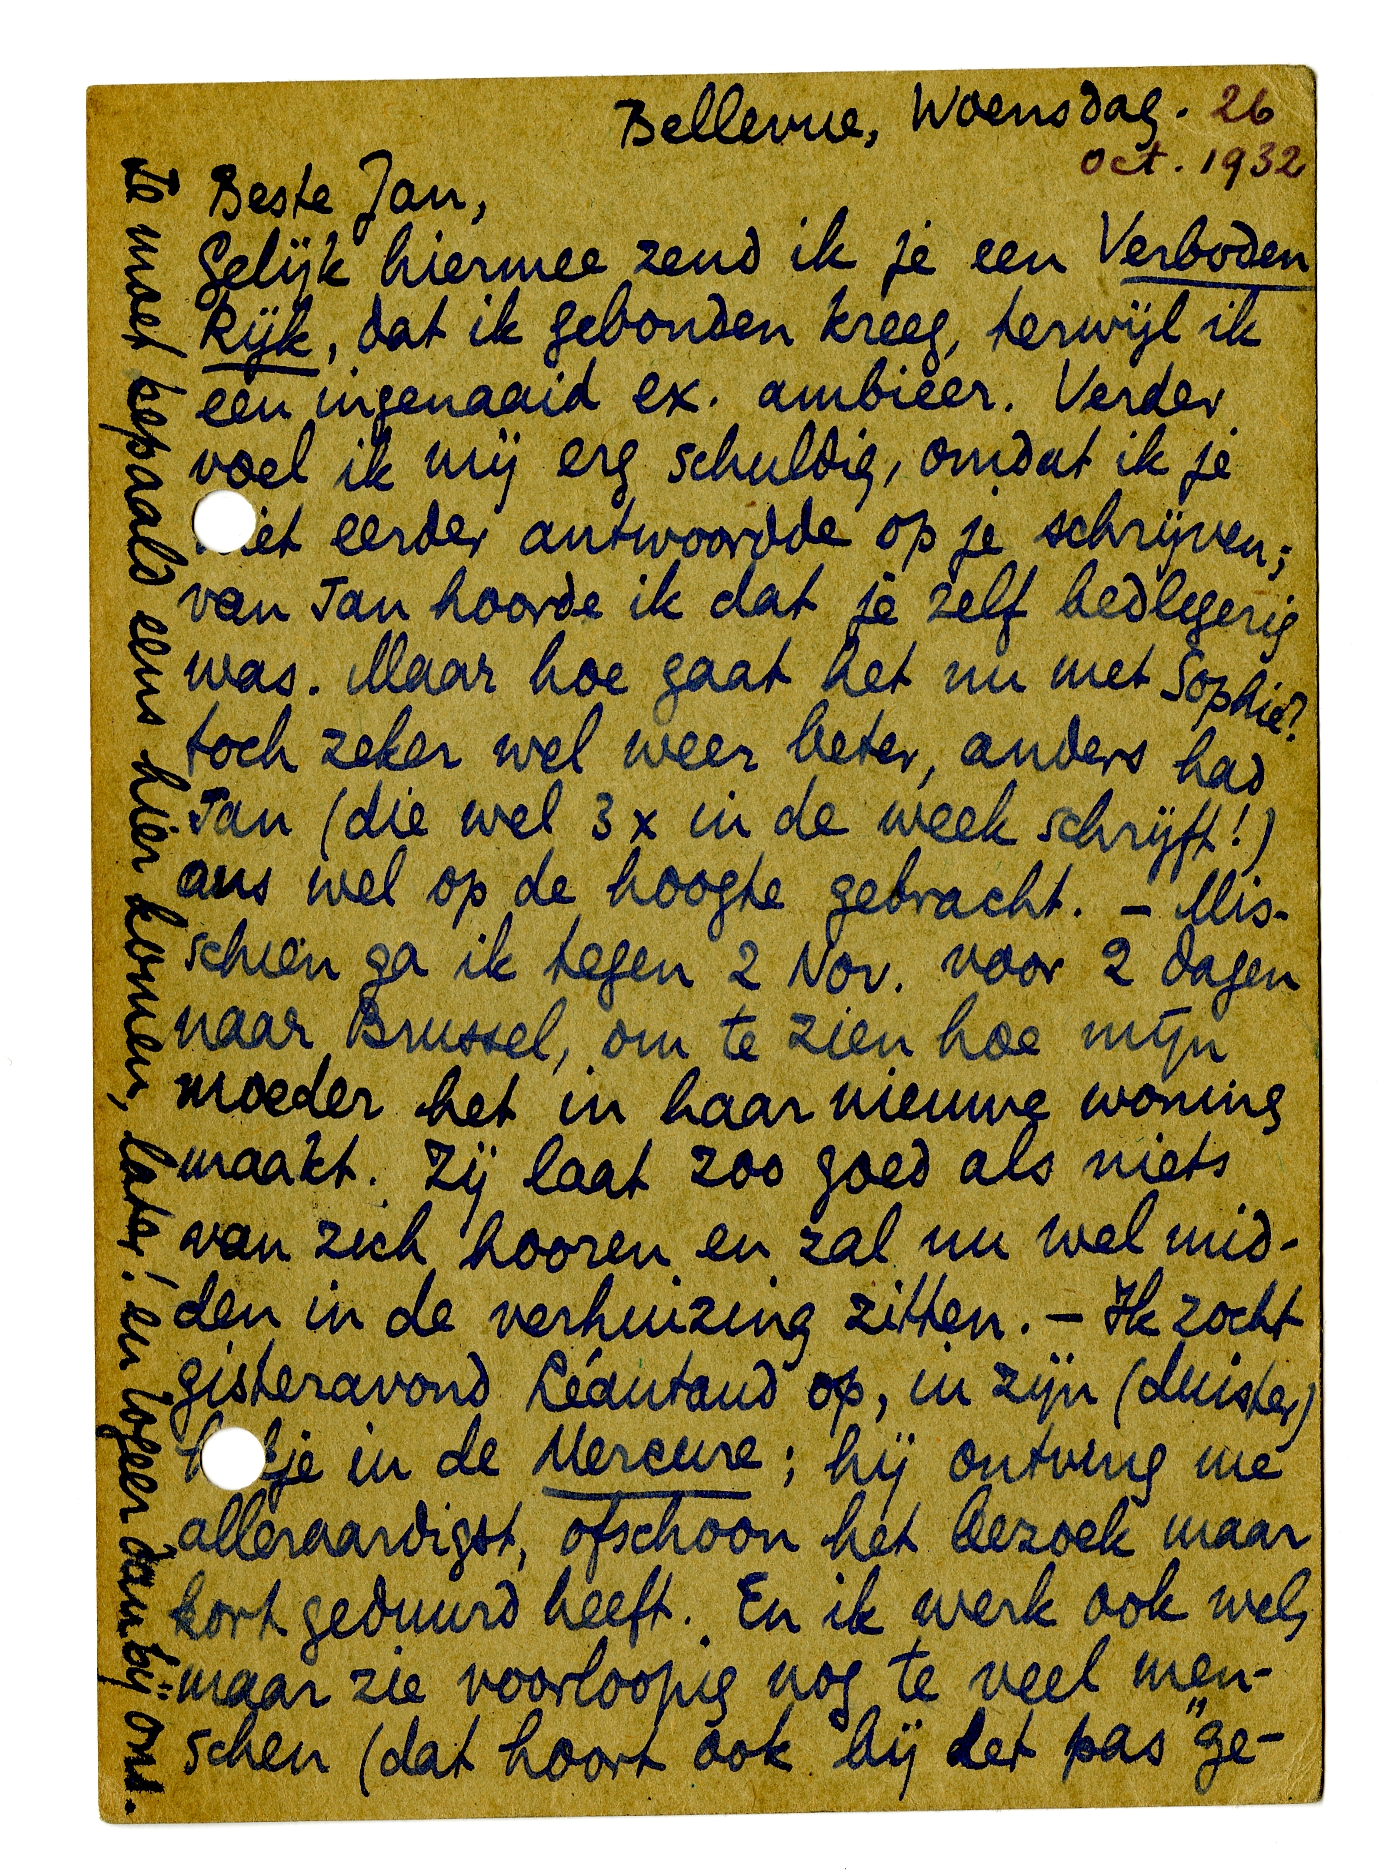 Bellevue, Woensdag. 26
oct. 1932
Beste Jan,
Gelijk hiermee zend ik je een Verboden
Rijk, dat ik gebonden kreeg, terwijl ik
een ingenaaid ex. ambieer. Verder
voel ik mij erg schuldig, omdat ik je
niet eerder antwoordde op je schrijven;
van Jan hoorde ik dat je zelf bedlegerig
was. Maar hoe gaat het nu met Sophie?
toch zeker wel weer beter, anders had
Jan (die wel 3x in de week schrijft!)
ons wel op de hoogte gebracht. – Mis-
schien ga ik tegen 2 Nov. voor 2 dagen
naar Brussel, om te zien hoe mijn
moeder het in haar nieuwe woning
maakt. Zij laat zoo goed als niets
van zich hooren en zal nu wel mid-
den in de verhuizing zitten. – Ik zocht
gisteravond Léautaud op, in zijn (duister)
je in de Mercure; hij ontving me
alleraardigst, ofschoon het bezoek maar
kort geduurd heeft. En ik werk ook wel,
maar zie voorloopig nog te veel men-
schen (dat hoort ook bij det pas "ge-
Je moet bepaald eens hier komen, later! en logeer dan bij ons.